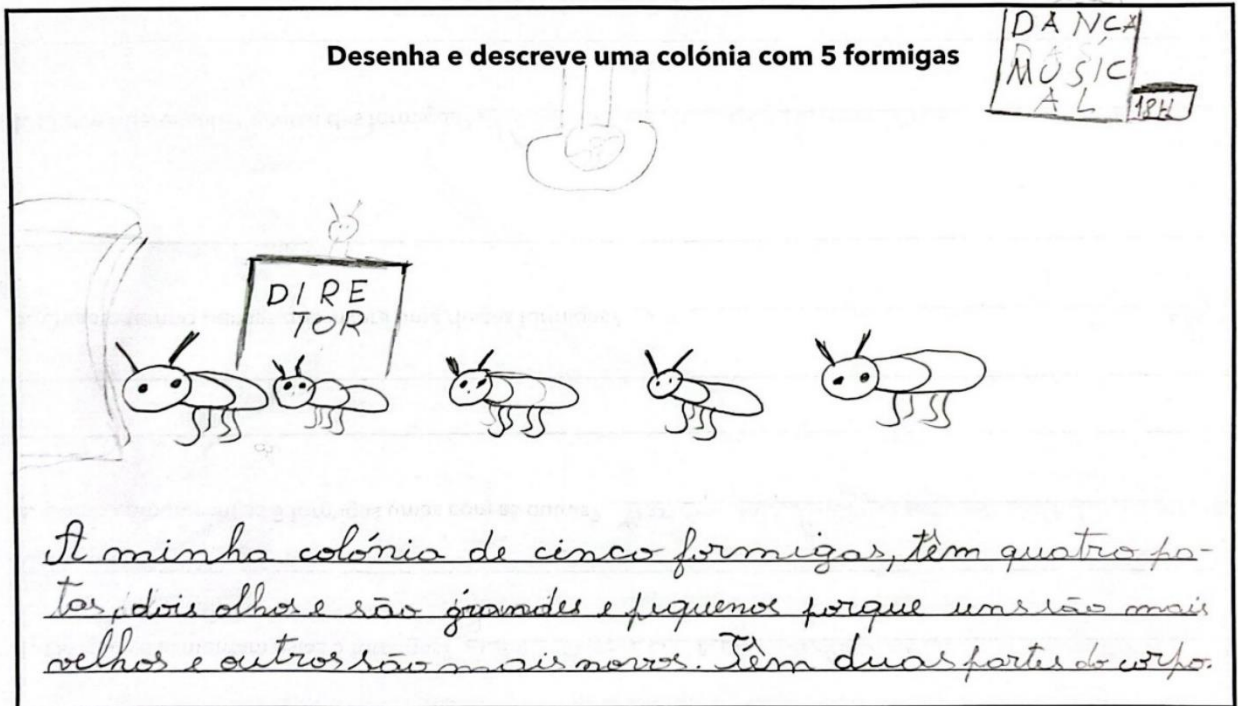 Desenha e descreve uma colónia com 5 formigas
DANCA
MUSIC
AL
18H
DIRE
TOR
A minha colónia de cinco formigas, têm quatro pa-
tas, dois olhos e são grandes e piquenos porque uns são mais
velhos e outros são mais novos. Têm duas partes do corpo.